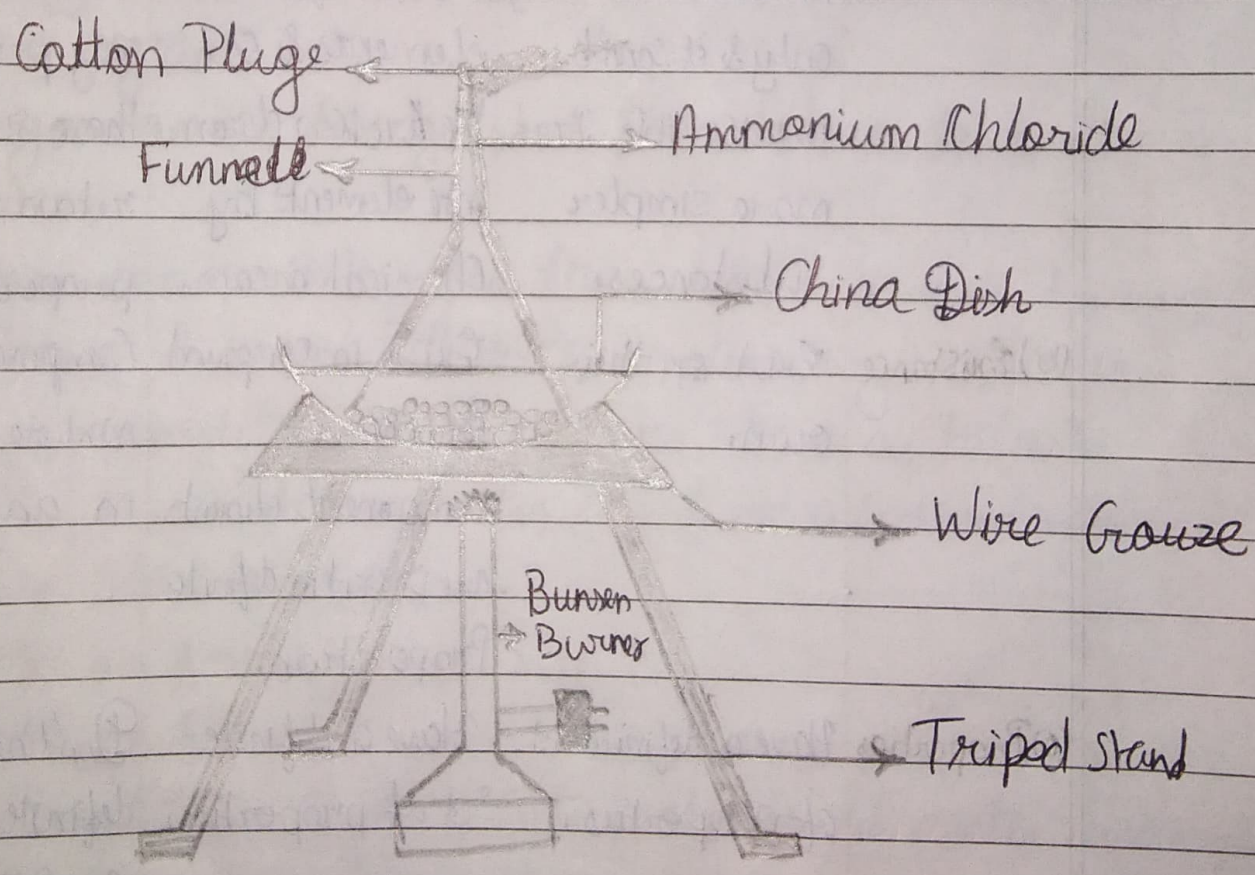 Cotton Pluge
Ammonium Chloride
Funnell
China Dish
Wire Gouze
Bunsen
Burner
Tripod Stand